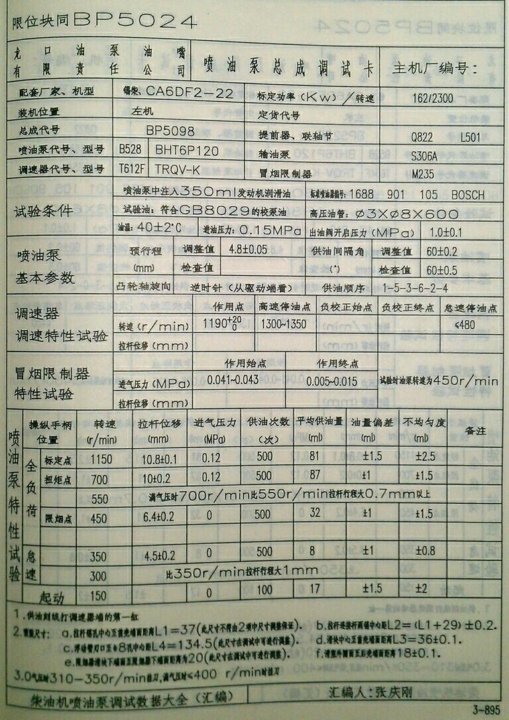 限位块同BP5024
龙口油泵油嘴有限责任公司 喷油泵总成调试卡 主机厂编号:
配套厂家、机型 锡柴、CA6DF2-22 标定功率(Kw)/转速 162/2300
装机位置 左机 定货代号
总成代号 BP5098 提前器、联轴节 Q822 L501
喷油泵代号、型号 B528 BHT6P120 输油泵 S306A
调速器代号、型号 T612F TRQV-K 冒烟限制器 M235
试验条件
喷油泵中注入350ml发动机润滑油 标准喷油器编号: 1688 901 105 BOSCH
试验油: 符合GB8029的校泵油 高压油管: ∅3X∅8X600
油温: 40±2°C 进油压力: 0.15MPa 出油阀开启压力(MPa) 1.0±0.1
喷油泵基本参数
预行程(mm) 调整值 4.8±0.05 供油间隔角(°) 调整值 60±0.2
检查值 检查值 60±0.5
凸轮轴旋向 逆时针(从驱动端看) 供油顺序 1-5-3-6-2-4
调速器调速特性试验
作用点 高速停油点 负校正始点 负校正终点 怠速停油点
转速(r/min) 1190+20 0 1300-1350 ≤480
拉杆位移(mm)
冒烟限制器特性试验
作用始点 作用终点
进气压力(MPa) 0.041-0.043 0.005-0.015 试验时油泵转速为450r/min
拉杆位移(mm)
喷油泵特性试验
操纵手柄位置 转速(r/min) 拉杆位移(mm) 进气压力(MPa) 供油次数(次) 平均供油量(ml) 油量偏差(ml) 不均匀度(ml) 备注
全负荷
标定点 1150 10.8±0.1 0.12 500 81 ±1.5 ±2.5
扭矩点 700 10±0.2 0.12 500 87 ±1 ±1.5
550 满气压时700r/min比550r/min拉杆行程大0.7mm以上
限烟点 450 6.4±0.2 0 500 32 ±1 ±1.5
怠速 350 4.5±0.2 0 500 8 ±1 ±0.8
300 比350r/min拉杆行程大1mm
起动 150 0 100 17 ±1.5 ±2
1.供油刻线打调速器端的第一缸
2.调整尺寸: a.拉杆部孔中心至壳体端面距离L1=37(此尺寸不得由2项中尺寸调整保证). b.拉杆连接杆两销中心距L2=(L1+29)±0.2.
c.浮动臂刃口至∅8孔中心距L4=134.5(此尺寸在调试中可进行调整). d.滑块中心至壳体端面距离L3=36±0.1.
e.限烟器滑块下端面至限烟器下端面距离为20(此尺寸在调试中可进行调整). f.滑套外圆面至后壳端面距离18±0.1.
3.0气压时310-350r/min挂刀,满气压时≤400 r/min时挂刀
柴油机喷油泵调试数据大全(汇编) 汇编人:张庆刚
3-895